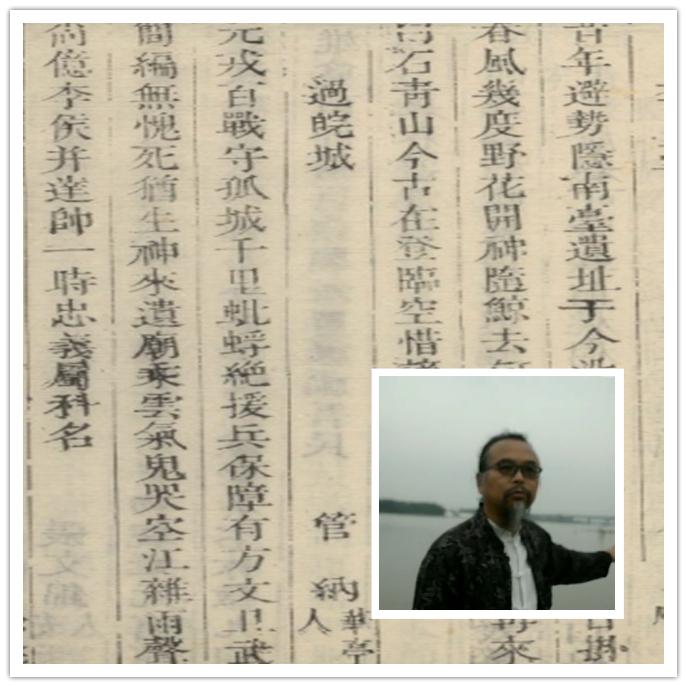 昔年避勢隱南臺遺址于今
春風幾度野花開神隨鯨去 再來
石青山今古在登臨空惜
過皖城 管納 華亭人
元戎百戰守孤城千里蚍蜉絶援兵保障有方文且武
簡編無愧死猶生神來遺廟乘雲氣鬼哭空江雜雨聲
尚億李侯并達帥一時忠義屬科名